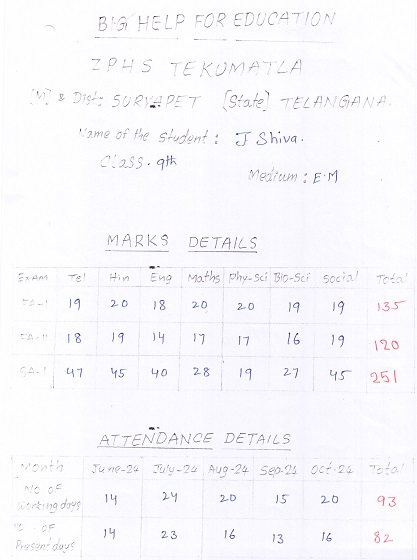 BIG HELP FOR EDUCATION
ZPHS TEKUMATLA
[M] & Dist: SURYAPET [State] TELANGANA.
Name of the student: J Shiva.
Class. 9th
Medium: E.M
MARKS DETAILS
EXAM Tel Hin Eng Maths Phy-Sci Bio-Sci Social Total
FA-I 19 20 18 20 20 19 19 135
FA-II 18 19 14 17 17 16 19 120
SA-I 47 45 40 28 19 27 45 251
ATTENDANCE DETAILS
Month June-24 July-24 Aug-24 Sep-24 Oct-24 Total
No of
Working days 14 24 20 15 20 93
No of
Present days 14 23 16 13 16 82